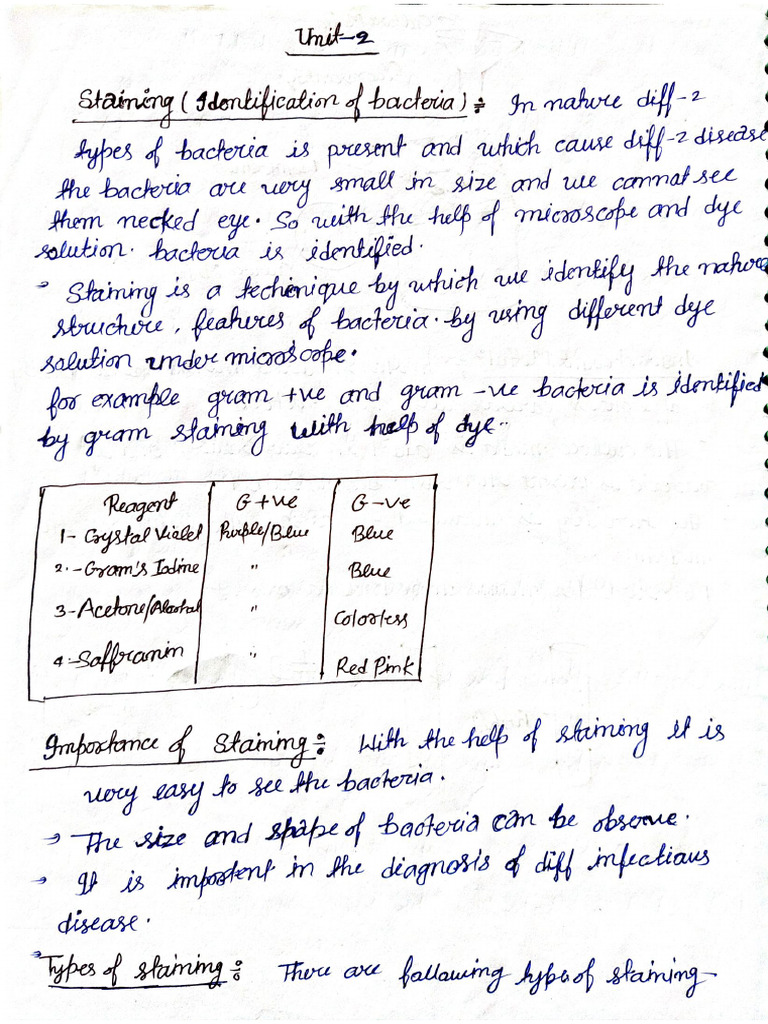 Unit-2
Staining (Identification of bacteria) ÷ In nature diff-2
types of bacteria is present and which cause diff-2 disease
the bacteria are very small in size and we cannot see
them necked eye. So with the help of microscope and dye
solution. bacteria is identified.
Staining is a techinique by which we identify the nature
structure, features of bacteria. by using different dye
solution under microscope.
for example gram +ve and gram -ve bacteria is identified
by gram staining with help of dye..
Reagent G+ve G-ve
1- Crystal Vialet Purple/Blue Blue
2.- Gram's Iodine " Blue
3- Acetone/Alcohal " Colorless
4- Saffranin " Red Pink
Importance of Staining ÷ With the help of staining it is
very easy to see the bacteria.
→ The size and shape of bacteria can be observe.
→ It is impotent in the diagnosis of diff infectious
disease.
→ Types of staining ÷ There are following type of staining-